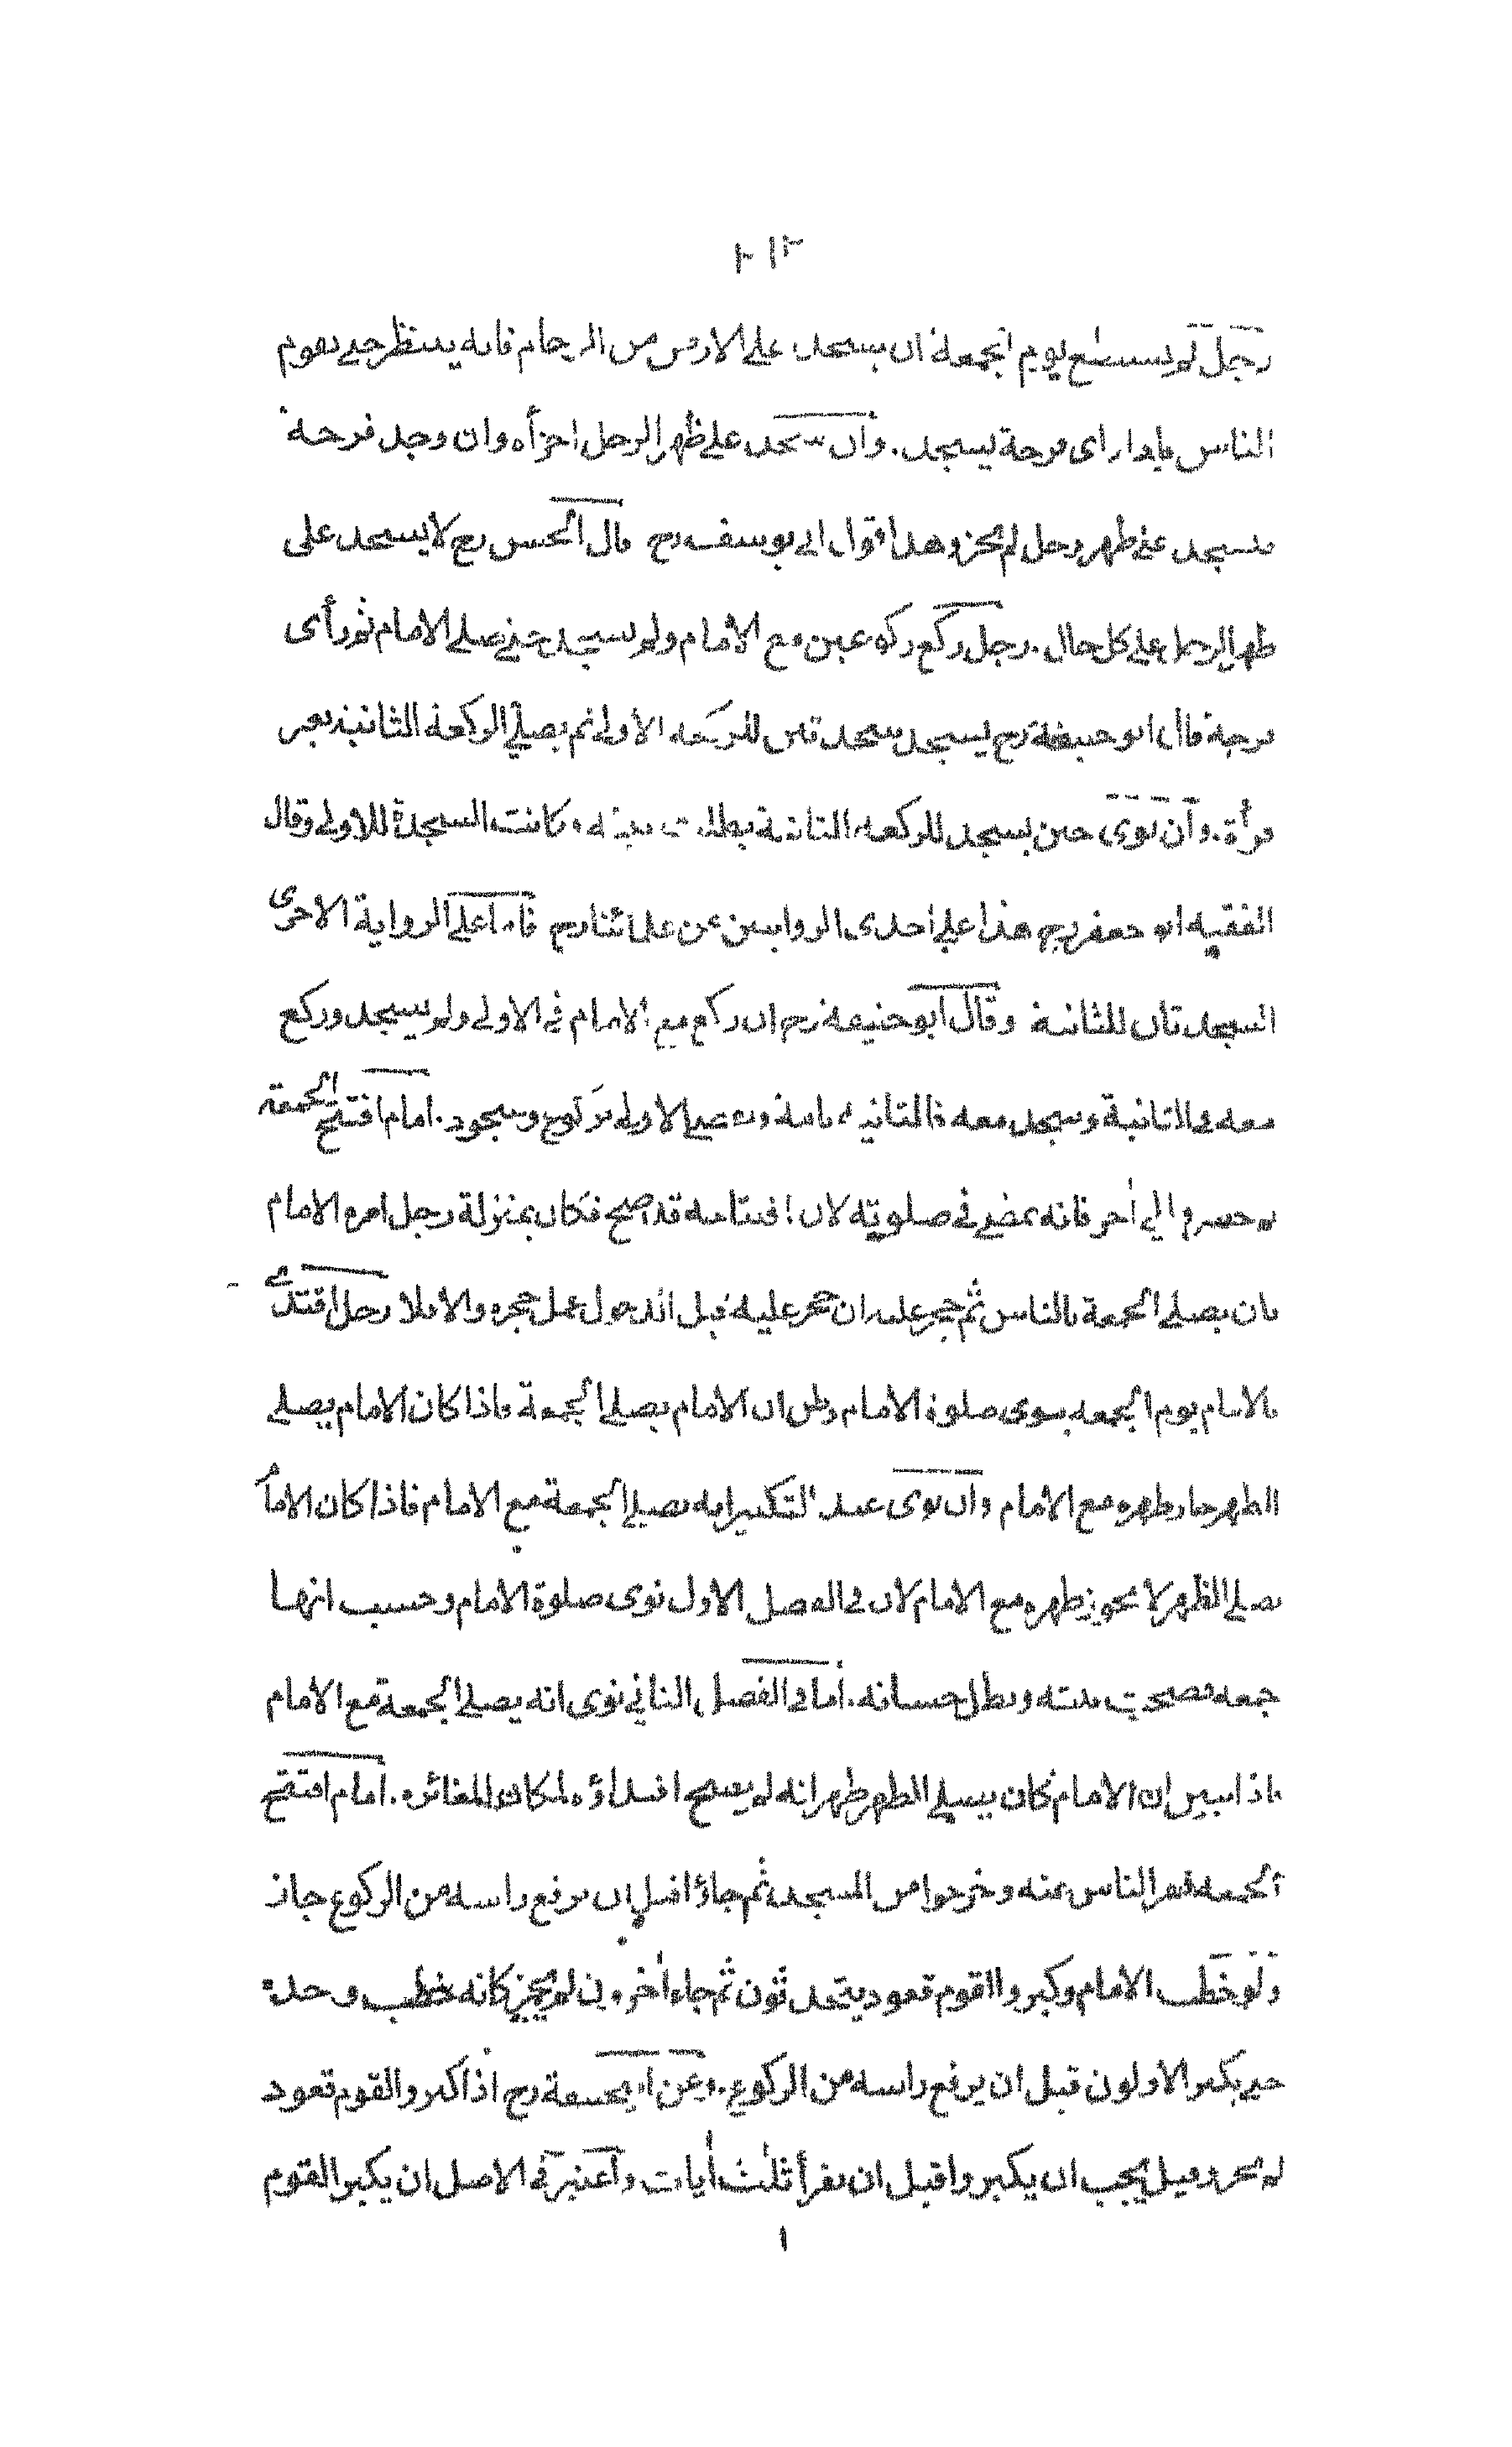 ٢١٢
رجل لم يستطع يوم الجمعة ان يسجد على الارض من الزحام فانه ينتظر حتى يقوم
الناس فاذا راى فرجة يسجد. وان سجد على ظهر الرجل اجزأه وان وجد فرجة
فسجد على ظهر رجل لم يجز وهذا قول ابي يوسف رح قال الحسن رح لا يسجد على
ظهر الرجل على كل حال. رجل ركع ركوعين مع الامام ولم يسجد حتى صلى الامام ثم رأى
فرجة قال ابو حنيفة رح يسجد سجدتين للركعة الاولى ثم يصلي الركعة الثانية بغير
قرأة. وان نوى حين يسجد للركعة الثانية بطلت نيته وكانت السجدة للاولى وقال
الفقيه ابو جعفر رح هذا على احدى الروايتين عن علمائنا رح فاما على الرواية الاخرى
السجدتان للثانية وقال ابو حنيفة رح ان ركع مع الامام في الاولى ولم يسجد وركع
معه في الثانية وسجد معه فالثانية تامة ويصلي الاولى بركوع وسجود. امام افتتح الجمعة
ثم حضر والي اخر فانه يمضي في صلوته لان افتتاحه قد صح فكان بمنزلة رجل امره الامام
بان يصلي الجمعة بالناس ثم حجر عليه ان حجر عليه قبل الدخول عمل حجره والا فلا رجل اقتدى
بالامام يوم الجمعة ينوى صلوة الامام وظن ان الامام يصلي الجمعة فاذا كان الامام يصلي
الظهر جاز ظهره مع الامام وان نوى عند التكبير انه يصلي الجمعة مع الامام فاذا كان الامام
يصلي الظهر لا يجوز ظهره مع الامام لان في الفصل الاول نوى صلوة الامام وحسب انها
جمعة فصحت نيته وبطل حسبانه. اما في الفصل الثاني نوى انه يصلي الجمعة مع الامام
فاذا تبين ان الامام كان يصلي الظهر ظهر انه لم يصح اقتداؤه لمكان المغائرة. امام افتتح
الجمعة فنفر الناس عنه وخرجوا من المسجد ثم جاؤا قبل ان يرفع راسه من الركوع جاز
ولو خطب الامام وكبر والقوم قعود يتحدثون ثم جاء اخرون لم يجز كانه خطب وحده
حتى يكبر الاولون قبل ان يرفع راسه من الركوع. وعن ابي حنيفة رح اذا كبر والقوم قعود
لم يجز وقيل يجب ان يكبروا قبل ان يقرأ ثلث ايات واعتبر في الاصل ان يكبر القوم